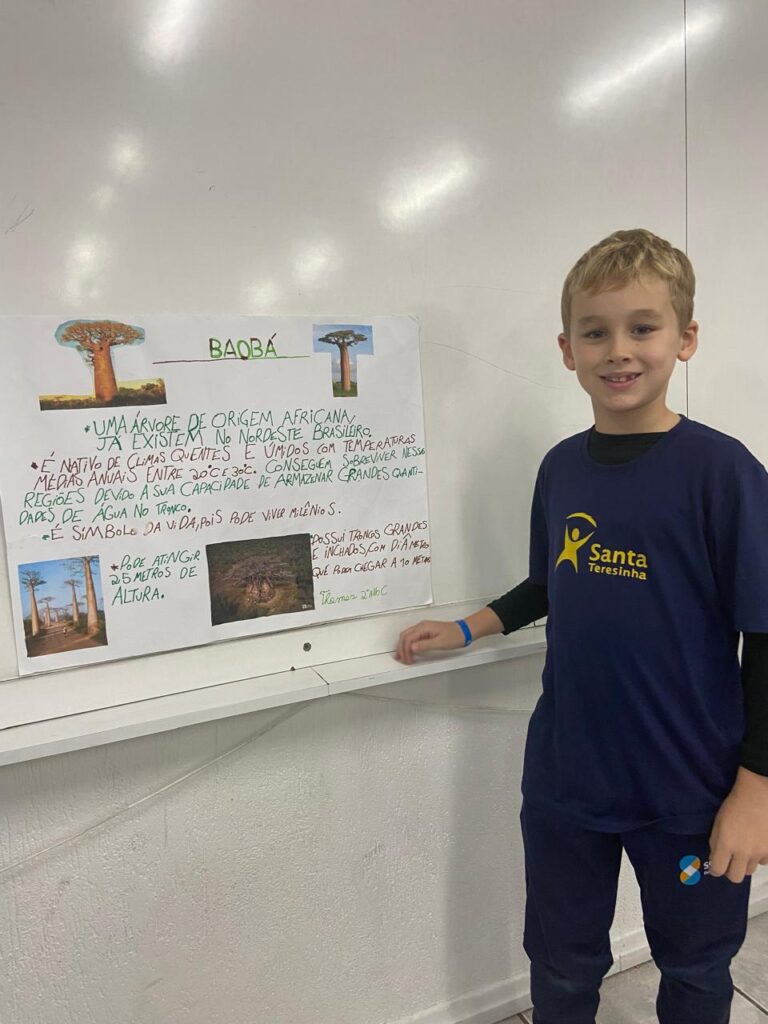 BAOBÁ
*UMA ÁRVORE DE ORIGEM AFRICANA,
JÁ EXISTEM NO NORDESTE BRASILEIRO.
*É NATIVO DE CLIMAS QUENTES E ÚMIDOS COM TEMPERATURAS
MÉDIAS ANUAIS ENTRE 20°C E 30°C. CONSEGUEM SOBREVIVER NESSAS
REGIÕES DEVIDO A SUA CAPACIDADE DE ARMAZENAR GRANDES QUANTI-
DADES DE ÁGUA NO TRONCO.
*É SÍMBOLO DA VIDA, POIS PODE VIVER MILÊNIOS.
*PODE ATINGIR
25 METROS DE
ALTURA.
POSSUI TRONCOS GRANDES
E INCHADOS, COM DIÂMETRO
QUE PODEM CHEGAR A 10 METROS
Santa
Teresinha